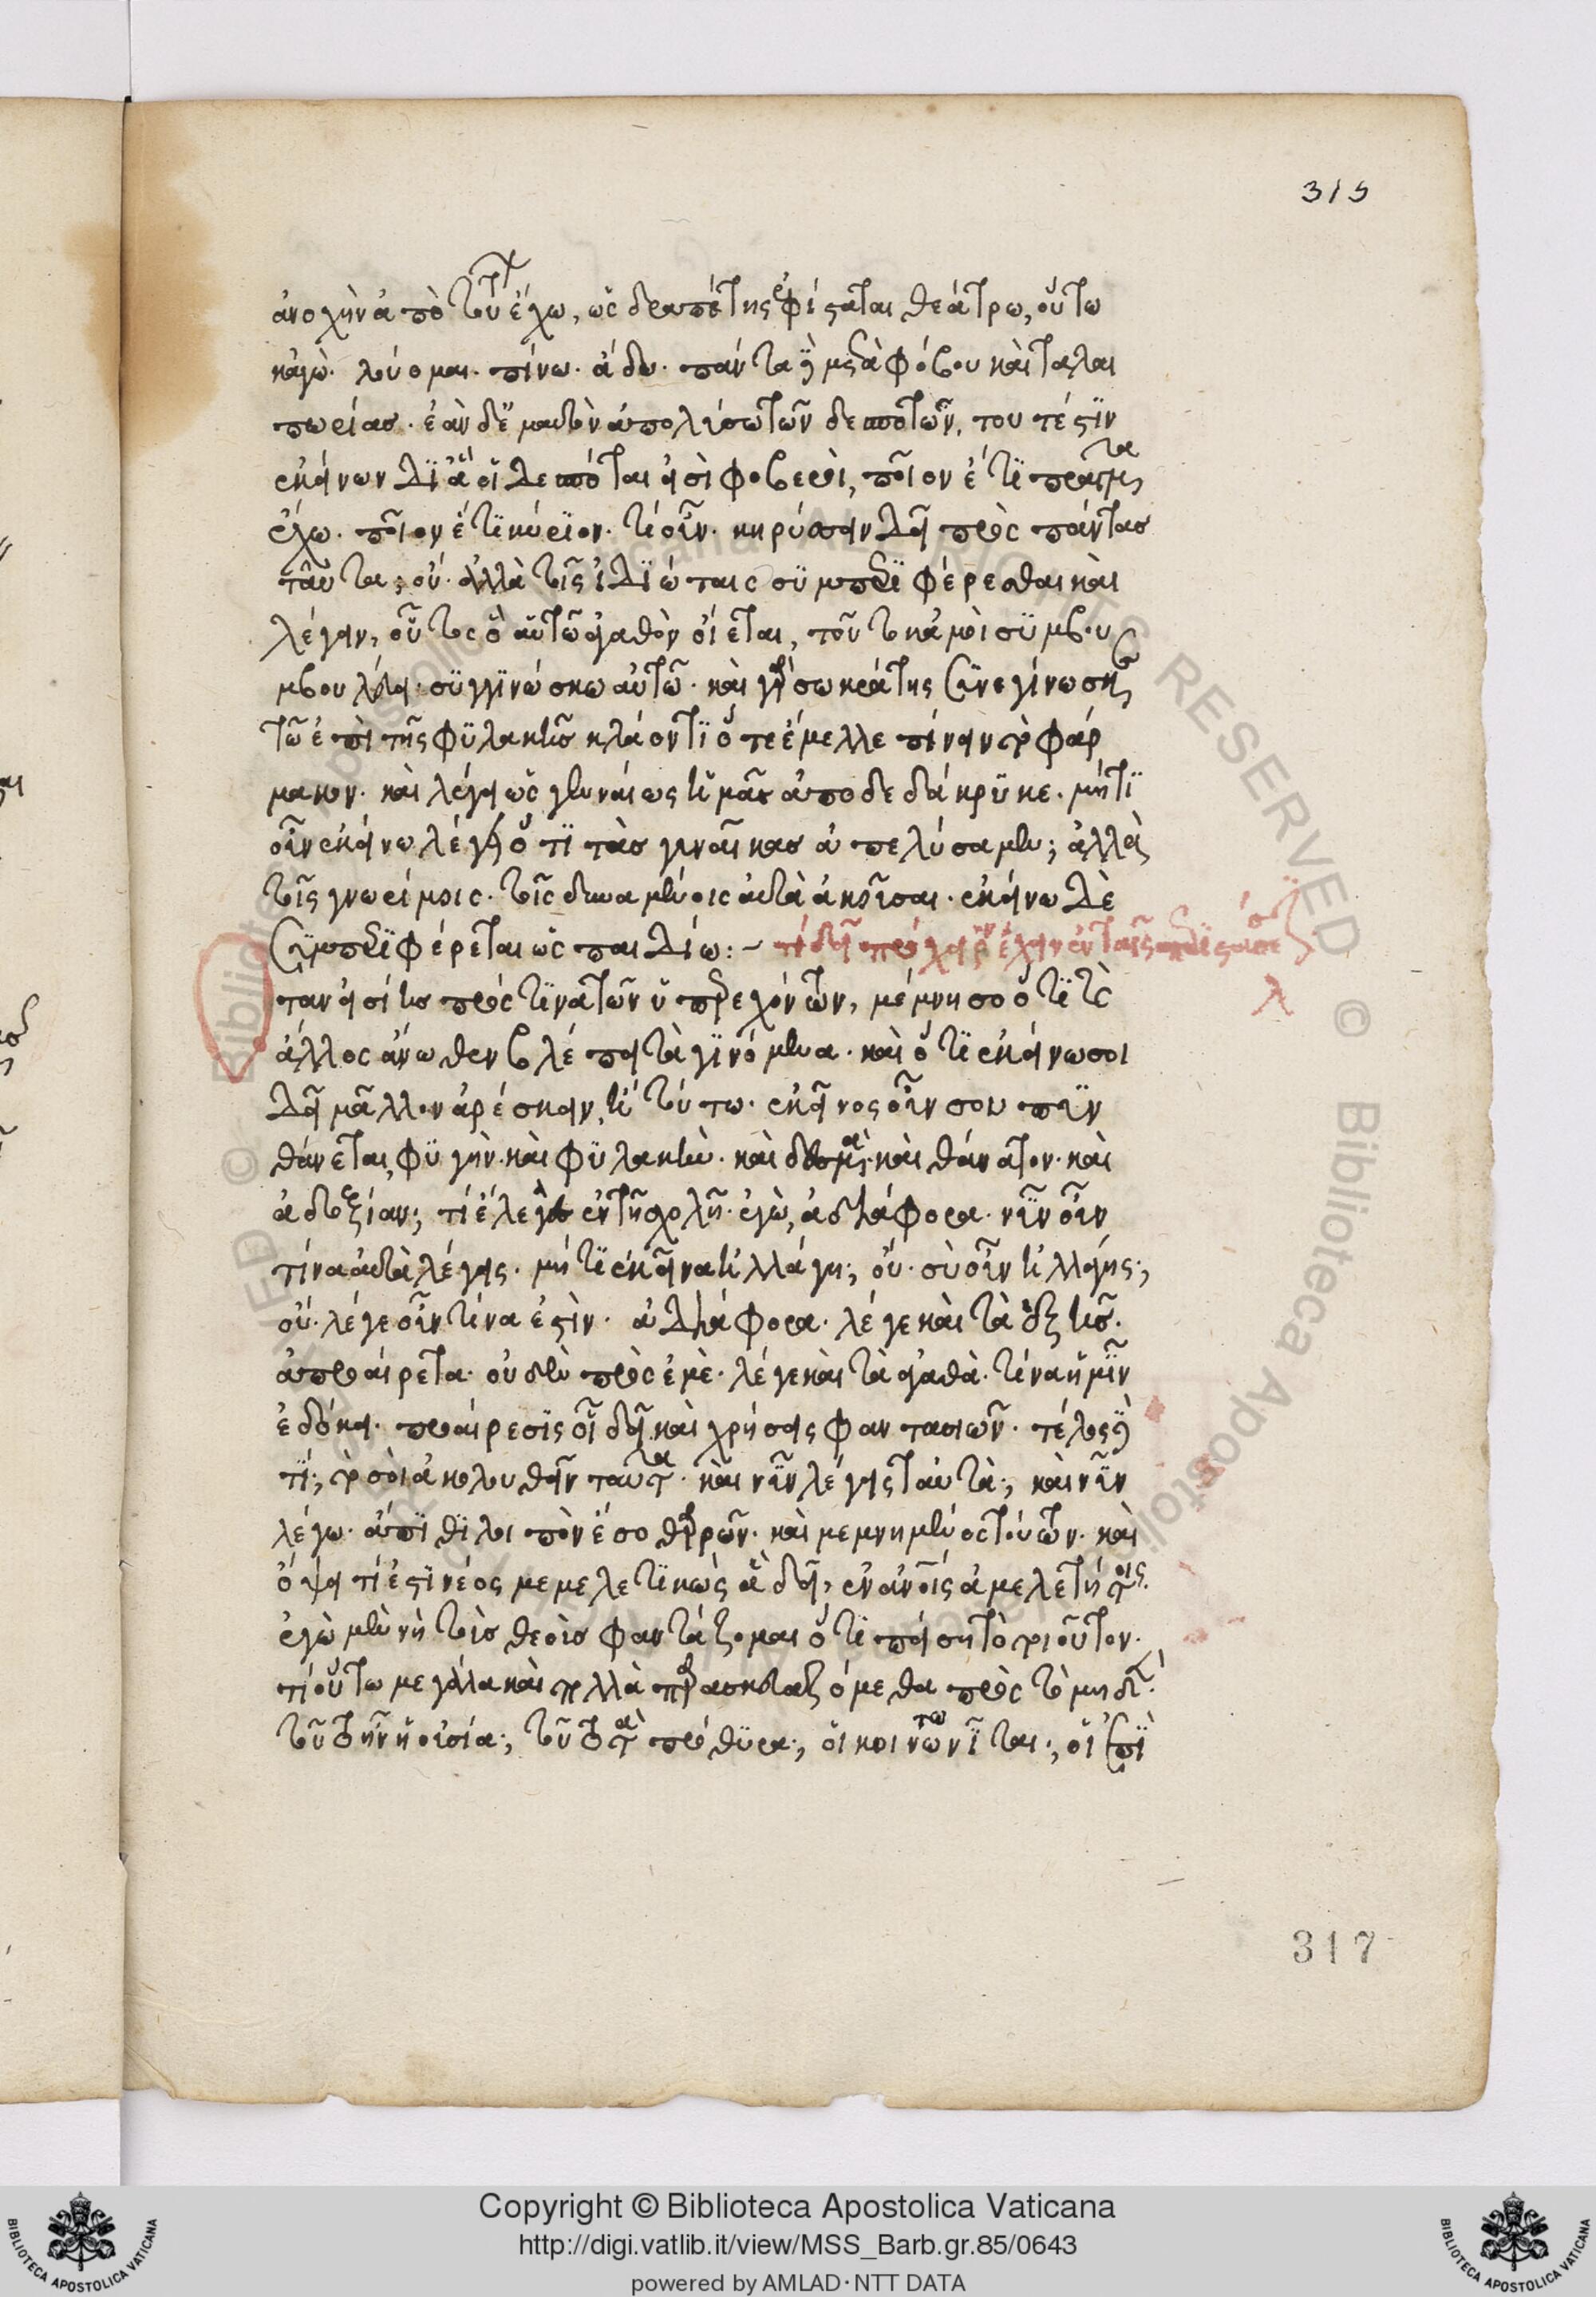 315
ἀνοχὴν ἀπὸ τούτων ἔχω, ὡς δραπέτης ἐφίσταται θεάτρω, οὕτω
κἀγὼ· λούομαι· πίνω· ἄδω· πάντα δὲ μετὰ φόβου καὶ ταλαι
πωρίας· ἐὰν δὲ ἐμαυτὸν ἀπολύσω τῶν δεσποτῶν, τουτέστιν
ἐκείνων δι ἃ οἱ δεσπόται εἰσὶ φοβεροὶ, ποῖον ἔτι πρᾶγμα
ἔχω· ποῖον ἔτι κύριον· τί οὖν· κηρύσσειν δεῖ πρὸς πάντας
ταῦτα; οὔ· ἀλλὰ τοῖς ἰδιώταις συμπεριφέρεσθαι καὶ
λέγειν, οὗτος ὃ αὑτῶ ἀγαθὸν οἴεται, τοῦτο κἀμοὶ συμβου
συγγινώσκω αὐτῶ· καὶ γὰρ σωκράτης συνεγίνωσκε
τῶ ἐπὶ τῆς φυλακῆς κλάοντι ὅτε ἔμελλε πίνειν τὸ φάρ
μακον· καὶ λέγει ὡς γενναίως ἡμᾶς ἀποδεδάκρυκε· μήτι
οὖν ἐκείνω λέγει ὅτι τὰς γυναῖκας ἀπελύσαμεν; ἀλλὰ
τοῖς γνωρίμοις· τοῖς δυναμένοις αὐτὰ ἀκοῦσαι· ἐκείνω δὲ
συμπεριφέρεται ὡς παιδίω:– τί δεῖ πρόχειρον ἔχειν ἐν ταῖς περιστάσεσιν
λ
ταν εἰσίης πρός τινα τῶν ὑπερεχόντων, μέμνησο ὅτι
ἄλλος ἄνωθεν βλέπει τὰ γινόμενα· καὶ ὅτι ἐκείνω σοι
δεῖ μᾶλλον ἀρέσκειν, ἢ τούτω· ἐκεῖνος οὖν σου πυν
θάνεται, φυγὴν· καὶ φυλακὴν· καὶ δεσμὰ· καὶ θάνατον· καὶ
ἀδοξίαν; τί ἔλεγες ἐν τῆ σχολῆ· ἐγὼ, ἀδιάφορα· νῦν οὖν
τίνα αὐτὰ λέγεις· μήτι ἐκεῖνα ἠλλάγη; οὔ· σὺ οὖν ἠλλάγης;
οὔ· λέγε οὖν τίνα ἐστὶν· ἀδιάφορα· λέγε καὶ τὰ ἑξῆς·
ἀπροαίρετα· οὐδὲν πρὸς ἐμὲ· λέγε καὶ τὰ ἀγαθὰ· τίνα ἡμῖν
ἐδόκει· προαίρεσις οἵα δεῖ καὶ χρήσεις φαντασιῶν· τέλος δὲ
τί; τὸ σοὶ ἀκολουθεῖν ταῦτα· καὶ νῦν λέγεις ταὐτὰ; καὶ νῦν
λέγω· ἄπιθι λοιπὸν ἔσω θαρρῶν· καὶ μεμνημένος τούτων· καὶ
ὄψει τί ἐστι νέος μεμελετικὼς ἃ δεῖ, ἐν ἀνοις ἀμελετήτοις·
ἐγὼ μὲν νὴ τοὺς θεοὺς φαντάζομαι ὅτι πείση τὸ τοιοῦτον·
τί οὕτω μεγάλα καὶ πολλὰ παρασκευαζόμεθα πρὸς τὸ μηδέν·
τοῦτο ἦν ἡ ἐξουσία; τοῦτο τὰ πρόθυρα; οἱ κοιτωνῖται; οἱ ἐπὶ
317
Copyright © Biblioteca Apostolica Vaticana
http://digi.vatlib.it/view/MSS_Barb.gr.85/0643
powered by AMLAD·NTT DATA